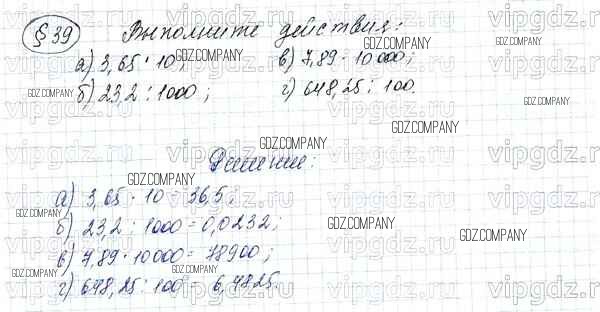 § 39 Выполните действия:
а) 3,65 · 10; в) 7,89 · 10000;
б) 23,2 : 1000; г) 648,25 : 100.
Решение:
а) 3,65 · 10 = 36,5;
б) 23,2 : 1000 = 0,0232;
в) 7,89 · 10000 = 78900;
г) 648,25 : 100 = 6,4825.
vipgdz.ru
GDZ.COMPANY